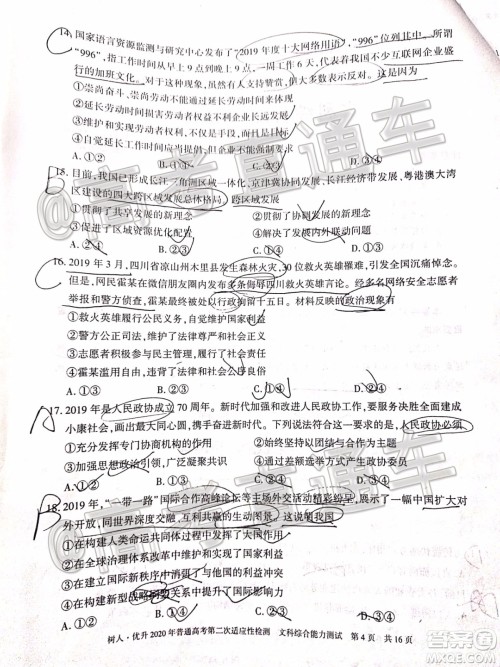 14.国家语言资源监测与研究中心发布了"2019年度十大网络用语","996"位列其中。所谓
"996",指工作时间从早上9点到晚上9点,一周工作6天,代表着我国不少互联网企业盛
行的加班文化。对于这种现象,虽然有人支持赞赏,但大多数表示反对。这是因为
①崇尚奋斗、崇尚劳动不等于强制加班
②延长劳动时间损害劳动者的合法权益
③延长劳动时间不能增加企业的利润
④自觉延长工作日,但企业不能强制要求
A.①② B.①③ C.②④ D.③④
15.目前,我国已形成长江三角洲区域一体化、京津冀协同发展、长江经济带发展、粤港澳大湾
区建设的四大跨区域发展总体格局。跨区域发展
①贯彻了共享发展的新理念 ②贯彻了协调发展的新理念
③促进了区域资源优化配置 ④解决了发展内外联动问题
A.①② B.①③ C.②③ D.②④
16.2019年3月,四川省凉山州木里县发生森林火灾,30位救火英雄罹难,引发全国沉痛悼念。
但网民霍某在微信朋友圈内发布多条侮辱四川救火英雄言论。经多名网络安全志愿者
举报和警方侦查,霍某最终被处以行政拘留十五日。材料反映的政治现象有
①救火英雄履行公民义务,自觉维护国家利益
②警方公正司法,维护了法律尊严和社会正义
③志愿者积极参与民主管理,维护了社会秩序
④霍某滥用自由,违背了法律和社会公德
A.①③ B.②③ C.①④ D.②④
17.2019年是人民政协成立70周年。新时代加强和改进人民政协工作,要服务决胜全面建成
小康社会,画出最大同心圆、汇聚推进新时代的磅礴力量。下列符合这一要求的是,人民政协必须
①充分发挥专门协商机构的作用 ②始终坚持以团结与合作为主题
③加强思想政治引领,广泛凝聚共识
A.①③ B.①④ C.②③ D.②④
18.2019年,"一带一路"国际合作高峰论坛等主场外交活动精彩纷呈,展示了一幅中国扩大对
外开放,同世界深度交融,互利共赢的生动图景。这说明我国
①在构建人类命运共同体的过程中发挥了大国作用
②在全球治理体系改革中维护和实现了国家利益
③在建立国际新秩序中增强了与他国的利益冲突
④在构建新型战略国际关系中
A.①② B.①③ C.②④ D.③④
树人·优升2020年普通高考第二次适应性检测 文科综合能力测试 第4页 共16页